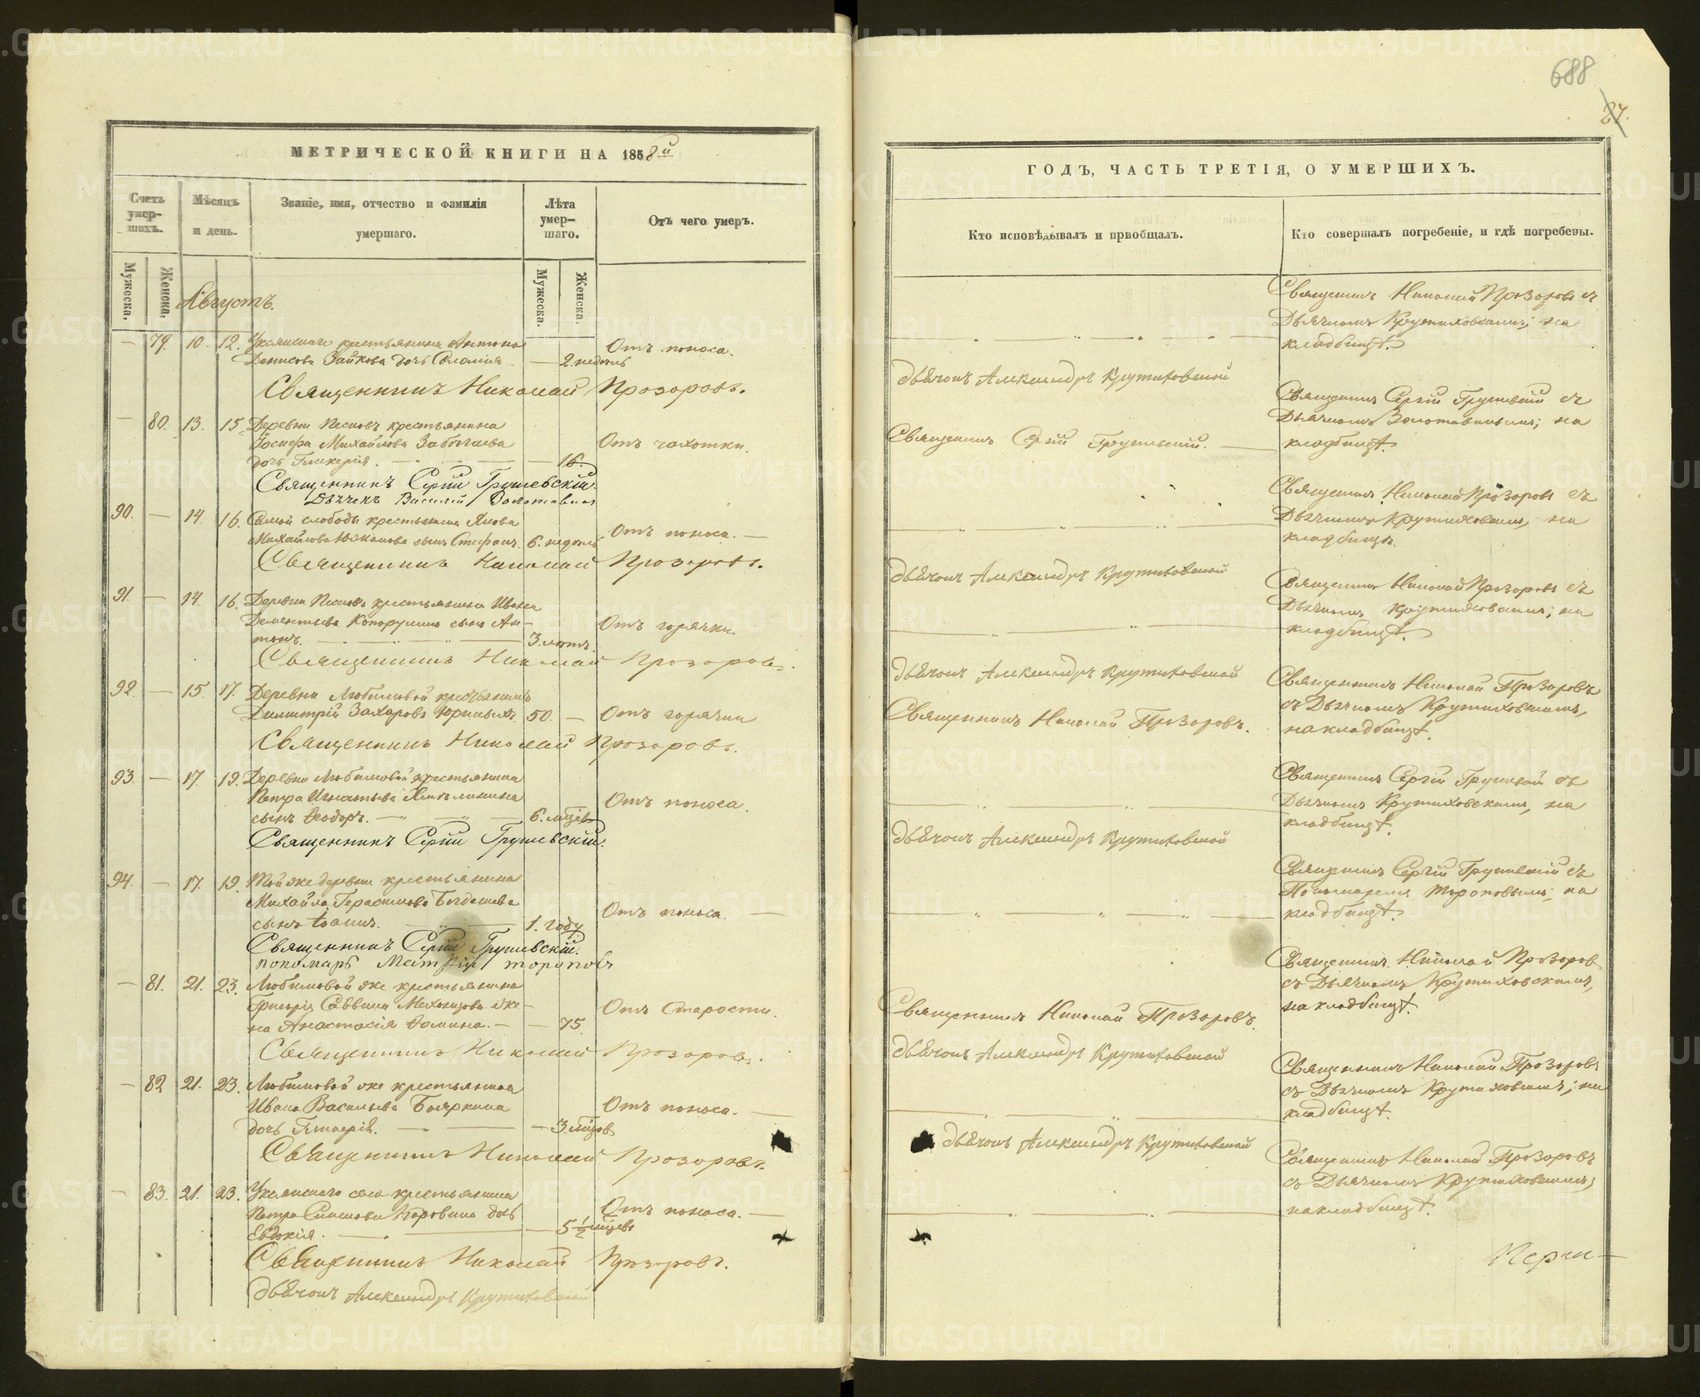 688
27.
МЕТРИЧЕСКОЙ КНИГИ НА 1858й
Счетъ умершихъ.
Мѣсяцъ и день.
Званіе, имя, отчество и фамилія умершаго.
Лѣта умершаго.
Отъ чего умеръ.
Мужеска.
Женска.
Мужеска.
Женска.
Августъ.
— 79. 10. 12. крестьянина Антона
Денисова Зайкова дочь Соломія — 2 недѣль
Отъ поноса.
Священникъ Николай Прозоровъ.
— 80. 13. 15. Деревни крестьянина
Іосифа Михайлова
дочь Гликерія. — — 16.
Отъ чахотки.
Священникъ Сергій Грушевскій.
Дьячекъ Василій
90. — 14. 16. слободы крестьянина Якова
Михайлова сынъ Стефанъ. 6. недѣль
Отъ поноса. —
Священникъ Николай Прозоровъ.
91. — 14. 16. Деревни крестьянина Ивана
Дементьева сынъ Ан-
тонъ. 3. лѣтъ.
Отъ горячки.
Священникъ Николай Прозоровъ.
92 — 15. 17. Деревни Любимовой крестьянинъ
Димитрій Захаровъ 50. —
Отъ горячки
Священникъ Николай Прозоровъ.
93. — 17. 19. Деревни Любимовой крестьянина
Петра Игнатьева
сынъ Ѳеодоръ. — 6. мѣсяц.
Отъ поноса.
Священникъ Сергій Грушевскій.
94. — 17. 19. Той же деревни крестьянина
Михайла Герасимова
сынъ Іоаннъ. 1. году
Отъ поноса. —
Священникъ Сергій Грушевскій.
пономарь Топоповъ
— 81. 21. 23. Любимовой же крестьянина
Григорія Саввина же-
на Анастасія Ѳомина. — — 75.
Отъ старости.
Священникъ Николай Прозоровъ.
— 82 21. 23. Любимовой же крестьянина
Ивана Васильева Бояркина
дочь — — 3. мѣсяцов
Отъ поноса. —
Священникъ Николай Прозоровъ.
— 83. 21. 23. села крестьянина
Петра дочь
Евдокія. — 5 ½ мѣсяцев
Отъ поноса. —
Священникъ Николай Прозоровъ.
Дьячокъ Александръ Крутиховской
ГОДЪ, ЧАСТЬ ТРЕТІЯ, О УМЕРШИХЪ.
Кто исповѣдывалъ и пріобщалъ.
Кто совершалъ погребеніе, и гдѣ погребены.
Священникъ Николай Прозоровъ съ
Дьячкомъ Крутиховскимъ; на
кладбищѣ.
Дьячокъ Александръ Крутиховской
Священникъ Сергій Грушевскій съ
Дьячкомъ на
кладбищѣ.
Священникъ Сергій Грушевскій.
Священникъ Николай Прозоровъ съ
Дьячкомъ Крутиховскимъ, на
кладбищѣ.
Дьячокъ Александръ Крутиховской
Священникъ Николай Прозоровъ съ
Дьячкомъ Крутиховскимъ; на
кладбищѣ.
Дьячокъ Александръ Крутиховской
Священникъ Николай Прозоровъ.
Священникъ Николай Прозоровъ
съ Дьячкомъ Крутиховскимъ,
на кладбищѣ.
Священникъ Сергій Грушевскій съ
Дьячкомъ Крутиховскимъ, на
кладбищѣ.
Дьячокъ Александръ Крутиховской
Священникъ Сергій Грушевскій съ
Пономаремъ Топоповымъ; на
кладбищѣ.
Священникъ Николай Прозоровъ
съ Дьячкомъ Крутиховскимъ,
на кладбищѣ.
Священникъ Николай Прозоровъ.
Дьячокъ Александръ Крутиховской
Священникъ Николай Прозоровъ
съ Дьячкомъ Крутиховскимъ; на
кладбищѣ.
Дьячокъ Александръ Крутиховской
Священникъ Николай Прозоровъ
съ Дьячкомъ Крутиховскимъ;
на кладбищѣ.
METRIKI.GASO-URAL.RU